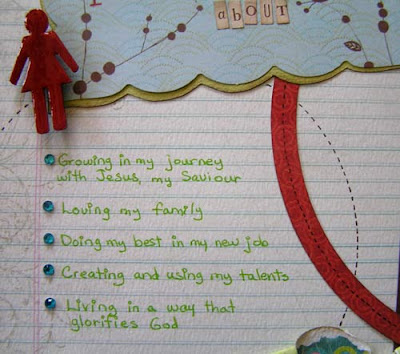 aBOUT
Growing in my journey
with Jesus, my Saviour
Loving my family
Doing my best in my new job
Creating and using my talents
Living in a way that
glorifies God